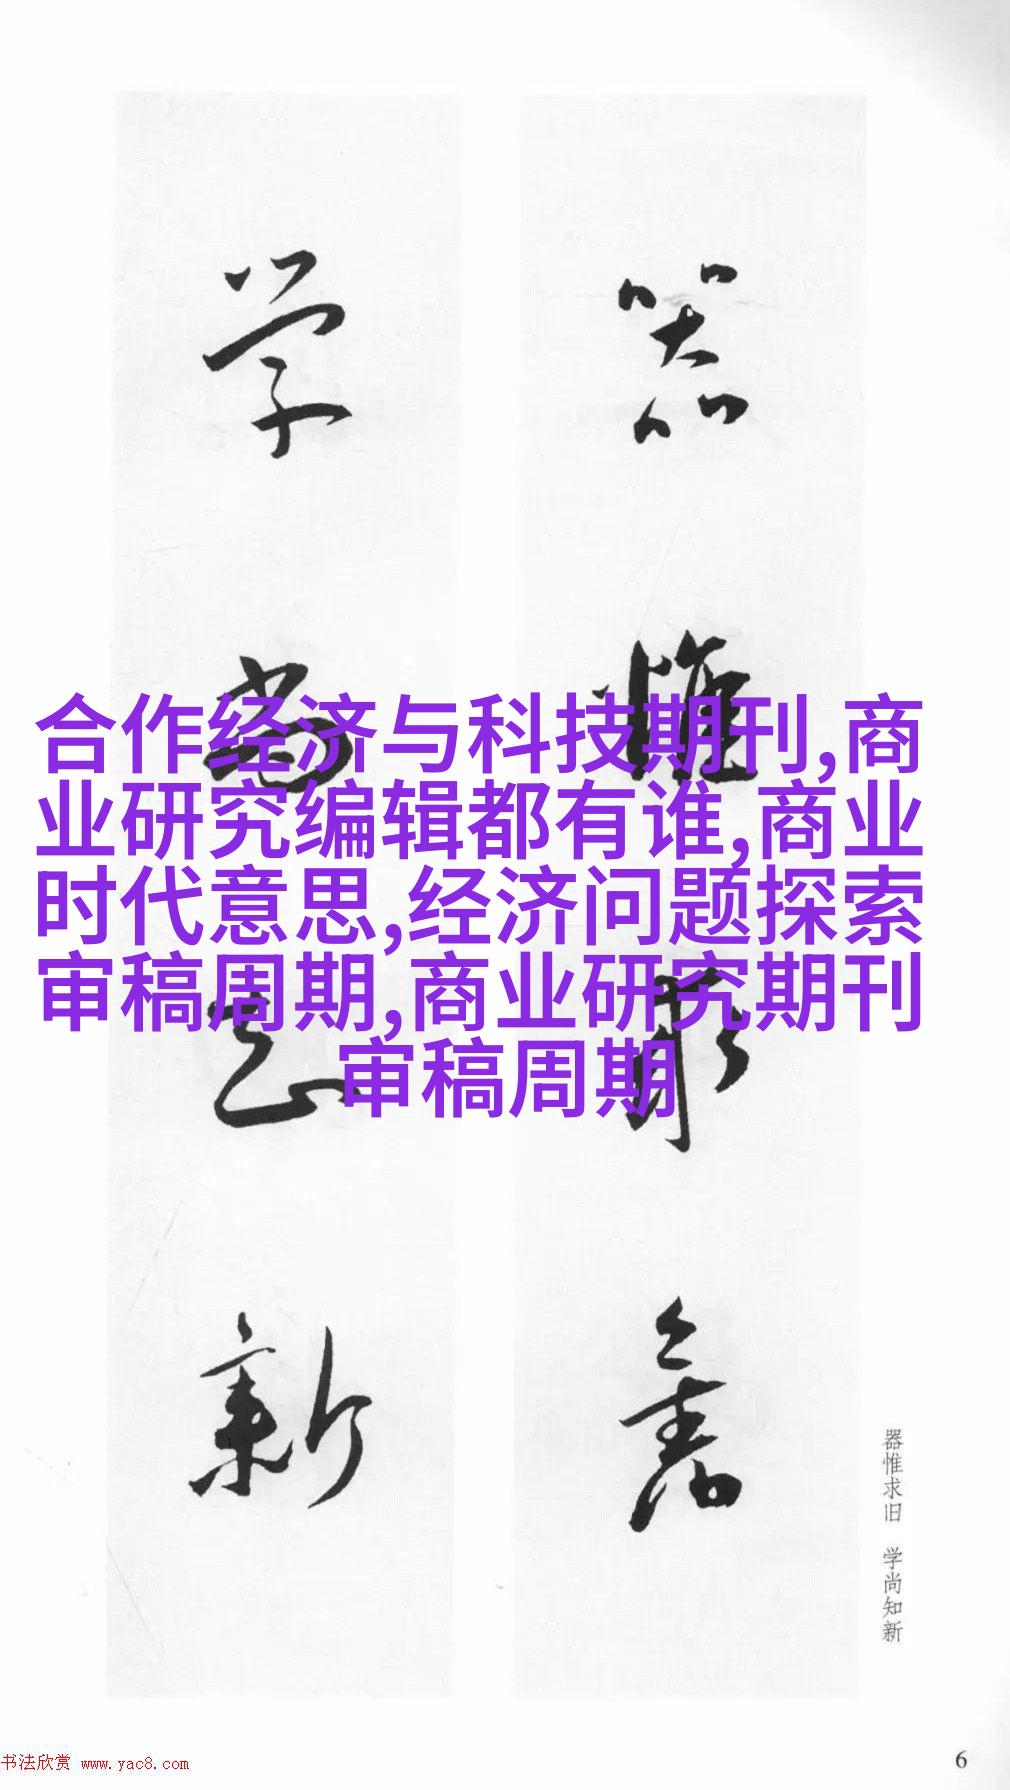 器惟求舊
学尚知新
合作经济与科技期刊,商
业研究编辑都有谁,商业
时代意思,经济问题探索
审稿周期,商业研究期刊
审稿周期
器惟求旧 学尚知新
书法欣赏 www.yac8.com
6